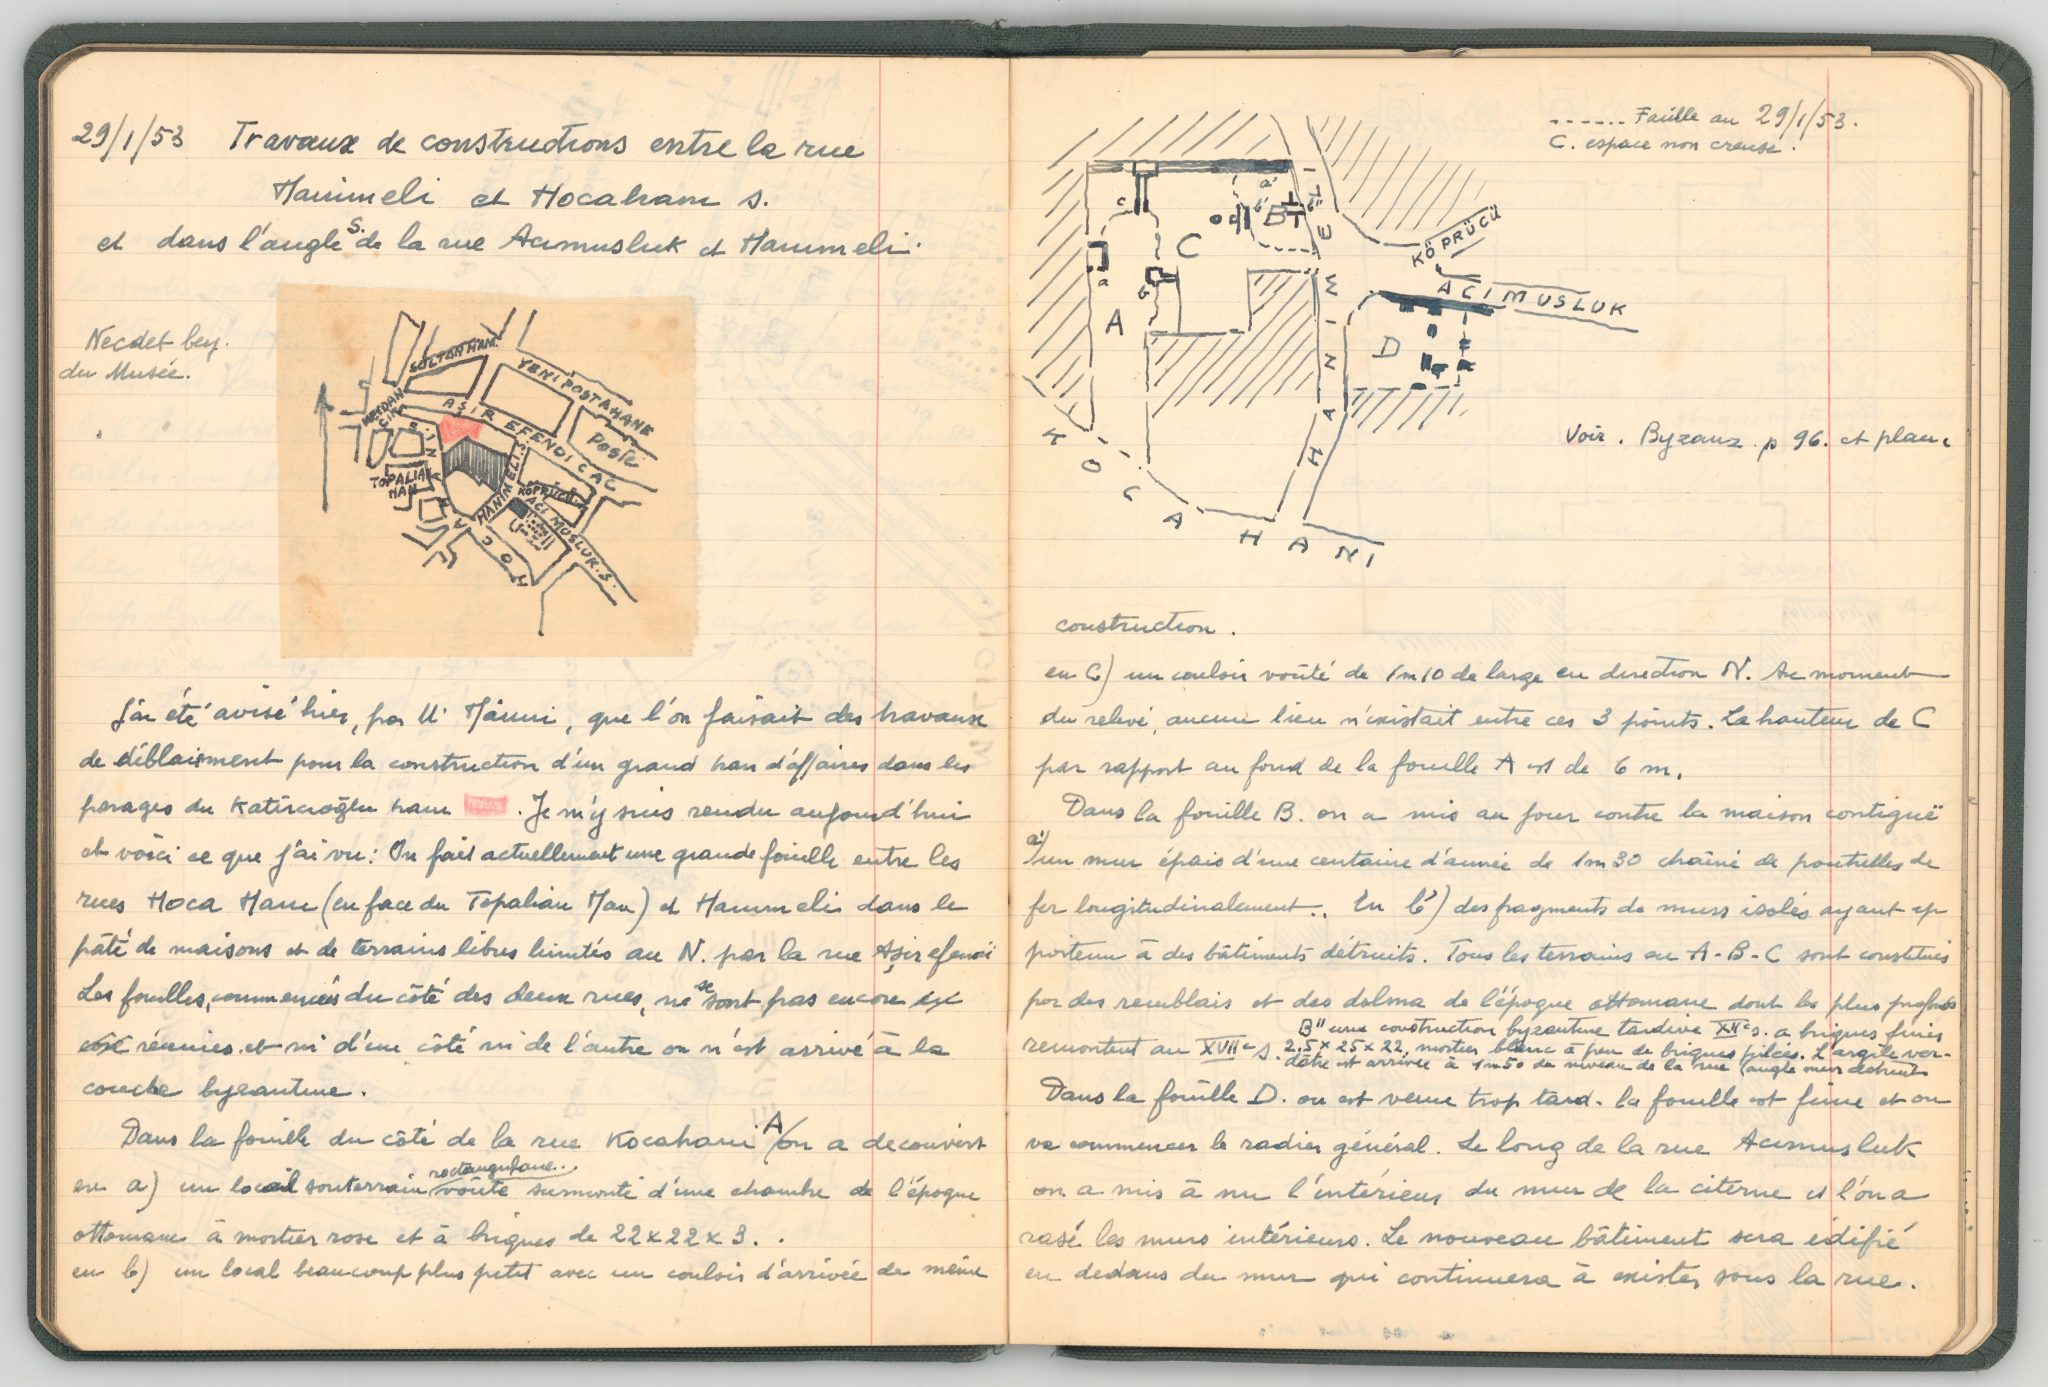 29/1/53 Travaux de constructions entre la rue
Hanimeli et Hocahani s.
et dans l'angle S. de la rue Acımusluk et Hanımeli.
Necdet bey.
du Musée.
SULTAN HAM.
YENI POSTAHANE
Poste
MEYDANCIK
AŞIR EFENDI CAC
TOPALIAN
HAN
HANIMELI
KÖPRÜCÜ
ACI MUSLUK.S.
J'ai été avisé hier, par Mr Mânni, que l'on faisait des travaux
de déblaiement pour la construction d'un grand han d'affaires dans les
parages du Katırcıoğlu hanı . Je m'y suis rendu aujourd'hui
et voici ce que j'ai vu : On fait actuellement une grande fouille entre les
rues Hoca Hanı (en face du Topalian Han) et Hanımeli dans le
pâté de maisons et de terrains libres limités au N. par la rue Aşir efendi
Les fouilles, commencées du côté des deux rues, ne se sont pas encore
réunies et ni d'un côté ni de l'autre on n'est arrivé à la
couche byzantine.
Dans la fouille du côté de la rue Kocahani A/on a découvert
en a) un local souterrain rectangulaire voûté surmonté d'une chambre de l'époque
ottomane à mortier rose et à briques de 22x22x3..
en b) un local beaucoup plus petit avec un couloir d'arrivée de même
------ Fouille au 29/1/53.
C. espace non creusé.
a'
b'
B
B"
c
C
a
b
A
D
KÖPRÜCÜ
ACIMUSLUK
HANIMELI
KOCAHANI
Voir. Byzanz p 96. et plan
construction.
en C) un couloir voûté de 1m10 de large en direction N. Au moment
du relevé, aucun lien n'existait entre ces 3 points. La hauteur de C
par rapport au fond de la fouille A est de 6 m.
Dans la fouille B. on a mis au jour contre la maison contiguë
a'/un mur épais d'une centaine d'année de 1m30 chaîné de poutrelles de
fer longitudinalement.. En b') des fragments de murs isolés ayant ap
partenu à des bâtiments détruits. Tous les terrains en A-B-C sont constitués
par des remblais et des dolma de l'époque ottomane dont les plus profonds
remontent au XVIIe s. B" une construction byzantine tardive XIIe s. a briques fines
2,5 x 25 x 22, mortier blanc à peu de briques pilées. L'argile ver-
dâtre est arrivée à 1m50 du niveau de la rue (angle mur détruit
Dans la fouille D. on est venu trop tard. la fouille est finie et on
va commencer le radier général. Le long de la rue Acımusluk
on a mis à nu l'intérieur du mur de la citerne et l'on a
rasé les murs intérieurs. Le nouveau bâtiment sera édifié
en dedans du mur qui continuera à exister sous la rue.